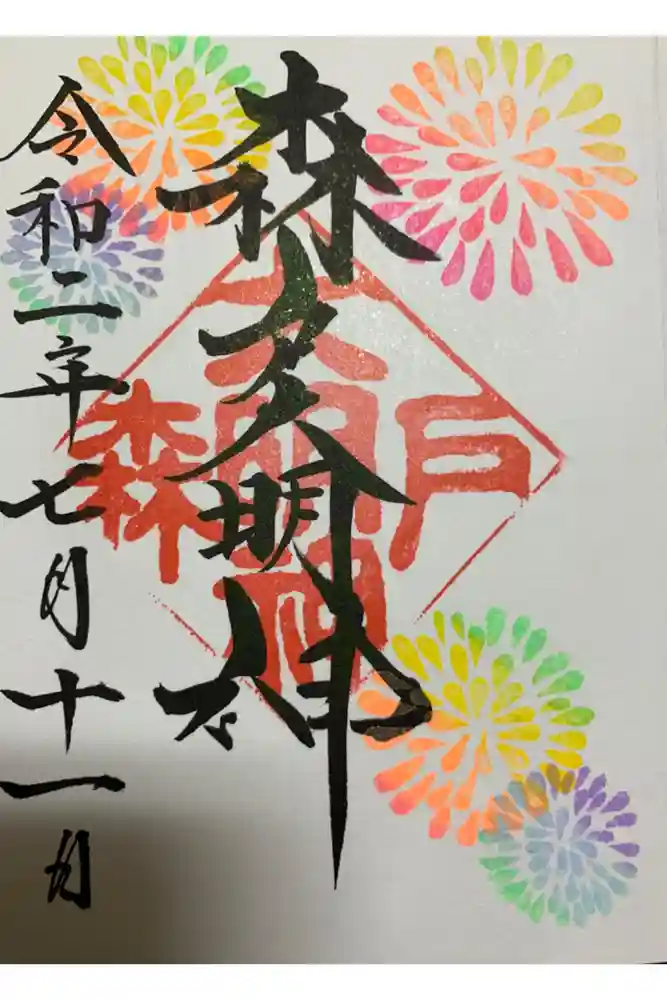 森大明神
令和二年七月十一日
戸
大明神
森